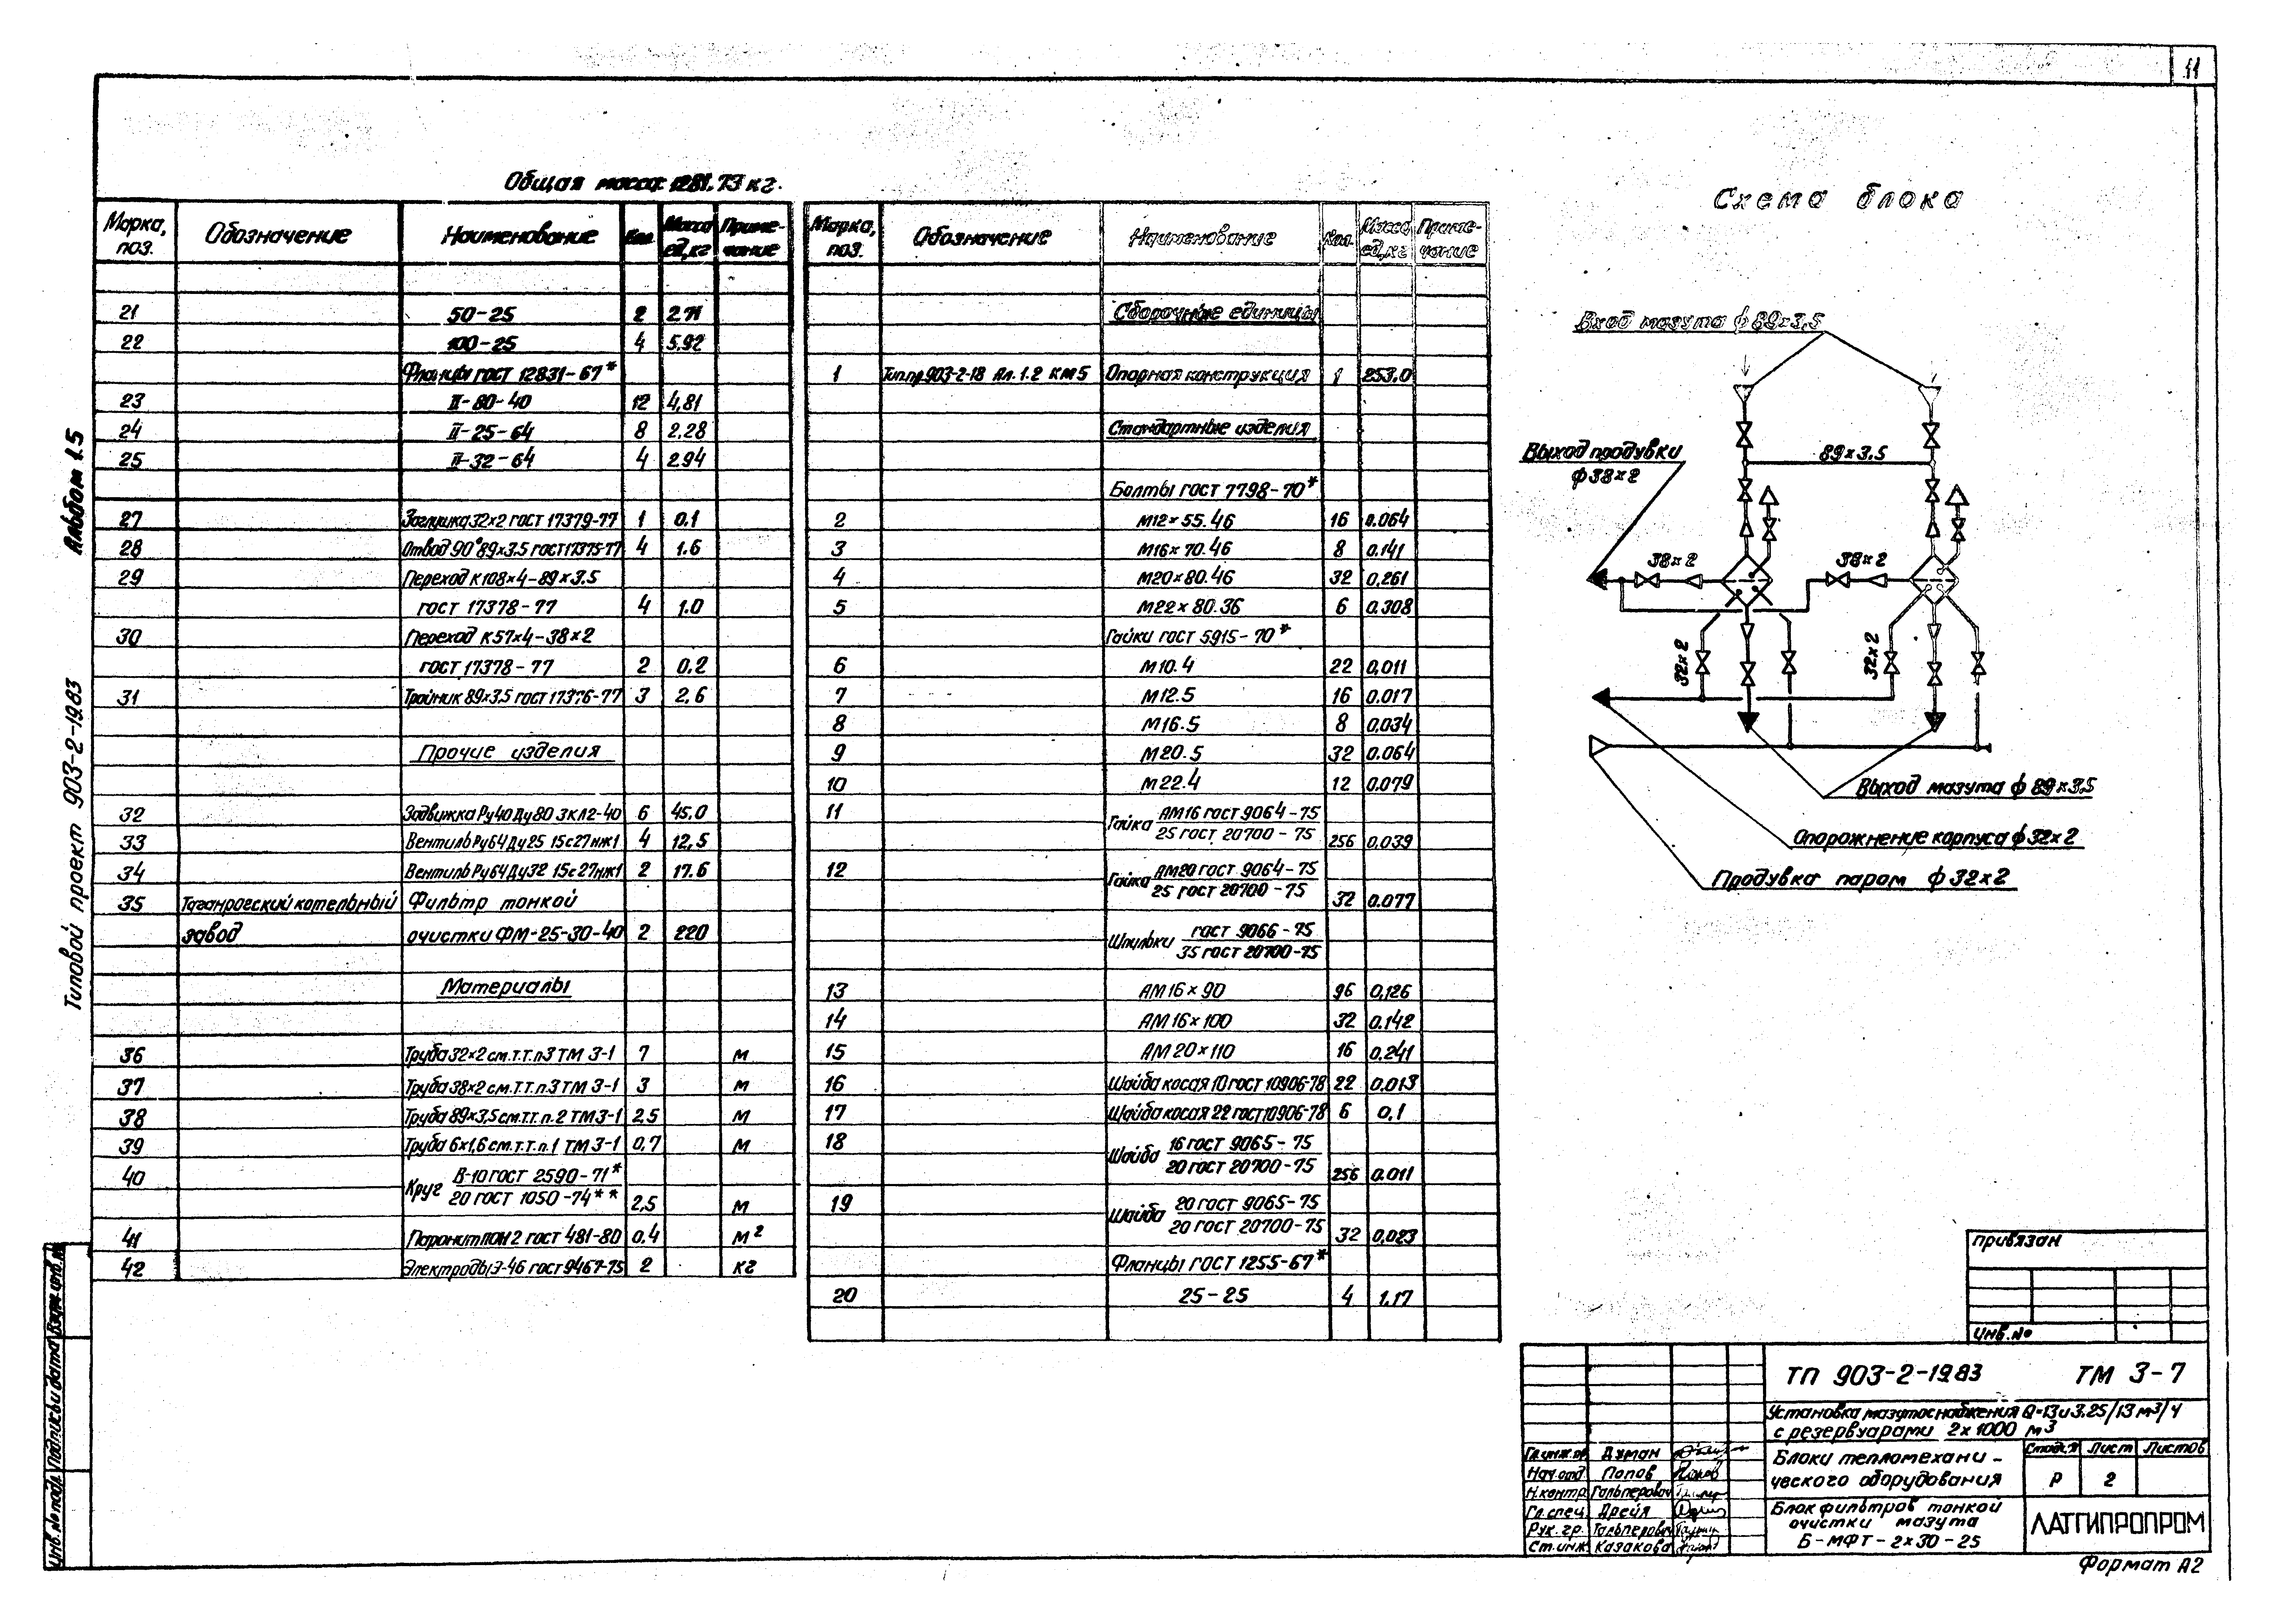 11
Общая масса: 1281.73 кг.
Марка, поз. Обозначение Наименование Кол. Масса ед, кг Приме-чание
21 50-25 2 2.71
22 100-25 4 5.92
Фланцы ГОСТ 12831-67*
23 II-80-40 12 4,81
24 II-25-64 8 2.28
25 II-32-64 4 2.94
27 Заглушка 32×2 ГОСТ 17379-77 1 0.1
28 Отвод 90° 89×3.5 ГОСТ 17375-77 4 1.6
29 Переход К108×4-89×3.5
ГОСТ 17378-77 4 1.0
30 Переход К57×4-38×2
ГОСТ 17378-77 2 0.2
31 Тройник 89×3.5 ГОСТ 17376-77 3 2,6
Прочие изделия
32 Задвижка Ру40 Ду80 ЗКЛ2-40 6 45.0
33 Вентиль Ру64 Ду25 15с27нж1 4 12,5
34 Вентиль Ру64 Ду32 15с27нж1 2 17.6
35 Таганрогский котельный Фильтр тонкой
завод очистки ФМ-25-30-40 2 220
Материалы
36 Труба 32×2 см.т.т.п3 ТМ 3-1 7 м
37 Труба 38×2 см.т.т.п.3 ТМ 3-1 3 м
38 Труба 89×3,5 см.т.т.п.2 ТМ3-1 2,5 м
39 Труба 6×1,6 см.т.т.п.1 ТМ 3-1 0,7 м
40 Круг В-10 ГОСТ 2590-71*
20 ГОСТ 1050-74** 2,5 м
41 Паронит ПОН 2 ГОСТ 481-80 0.4 м²
42 Электроды Э-46 ГОСТ 9467-75 2 кг
Марка, поз. Обозначение Наименование Кол. Масса ед, кг Приме-чание
Сборочные единицы
1 Тип.пр.903-2-18 Ал.1.2 КМ5 Опорная конструкция 1 253.0
Стандартные изделия
Болты ГОСТ 7798-70*
2 М12×55.46 16 0.064
3 М16×70.46 8 0.141
4 М20×80.46 32 0,261
5 М22×80.36 6 0.308
Гайки ГОСТ 5915-70*
6 М10.4 22 0,011
7 М12.5 16 0.017
8 М16.5 8 0,034
9 М20.5 32 0.064
10 М22.4 12 0.079
11 Гайка АМ16 ГОСТ 9064-75
25 ГОСТ 20700-75 256 0.039
12 Гайка АМ20 ГОСТ 9064-75
25 ГОСТ 20700-75 32 0.077
Шпильки ГОСТ 9066-75
35 ГОСТ 20700-75
13 АМ16×90 96 0,126
14 АМ16×100 32 0.142
15 АМ20×110 16 0,241
16 Шайба косая 10 ГОСТ 10906-78 22 0.013
17 Шайба косая 22 ГОСТ 10906-78 6 0,1
18 Шайба 16 ГОСТ 9065-75
20 ГОСТ 20700-75 256 0.011
19 Шайба 20 ГОСТ 9065-75
20 ГОСТ 20700-75 32 0,023
Фланцы ГОСТ 1255-67*
20 25-25 4 1.17
Схема блока
Вход мазута ф 89×3,5
Выход продувки
ф 38×2
89×3.5
38×2
38×2
32×2
32×2
Выход мазута ф 89×3,5
Опорожнение корпуса ф 32×2
Продувка паром ф 32×2
Альбом 1.5
Типовой проект 903-2-19.83
Инв.№ подл. Подпись и дата Взам.инв.№
Привязан
Инв.№
ТП 903-2-19.83 ТМ 3-7
Установка мазутоснабжения Q=13 и 3.25/13 м³/ч
с резервуарами 2×1000 м³
Блоки тепломехани-
ческого оборудования
Стадия Лист Листов
Р 2
Блок фильтров тонкой
очистки мазута
Б-МФТ-2×30-25
ЛАТГИПРОПРОМ
Гл.инж.пр. Думан
Нач.отд. Попов
Н.контр. Гальперович
Гл.спец. Дрейя
Рук.гр. Гальперович
Ст.инж. Казакова
Формат А2